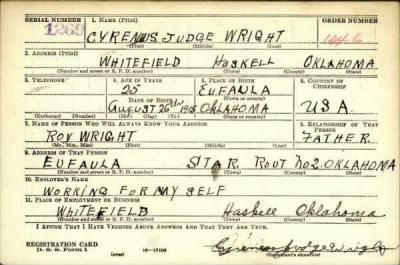 SERIAL NUMBER 1. NAME (Print) ORDER NUMBER
1369 CYRENUS JUDGE WRIGHT
(First) (Middle) (Last)
2. ADDRESS (Print)
WHITEFIELD HASKELL OKLAHOMA
(Number and street or R. F. D. number) (Town) (County) (State)
3. TELEPHONE 4. AGE IN YEARS 5. PLACE OF BIRTH 6. COUNTRY OF CITIZENSHIP
25 EUFAULA
DATE OF BIRTH (Town or county)
AUGUST 26th 1915 OKLAHOMA U.S.A.
(Exchange) (Number) (Mo.) (Day) (Yr.) (State or country)
7. NAME OF PERSON WHO WILL ALWAYS KNOW YOUR ADDRESS 8. RELATIONSHIP OF THAT PERSON
ROY WRIGHT FATHER
(Mr., Mrs., Miss) (First) (Middle) (Last)
9. ADDRESS OF THAT PERSON
EUFAULA STAR ROUT NO2. OKLAHOMA
(Number and street or R. F. D. number) (Town) (County) (State)
10. EMPLOYER'S NAME
WORKING FOR MY SELF
11. PLACE OF EMPLOYMENT OR BUSINESS
WHITEFIELD Haskell Oklahoma
(Number and street or R. F. D. number) (Town) (County) (State)
I AFFIRM THAT I HAVE VERIFIED ABOVE ANSWERS AND THAT THEY ARE TRUE.
REGISTRATION CARD
D. S. S. Form 1 (over) 16—17105 Cyrenus Judge Wright
(Registrant's signature)